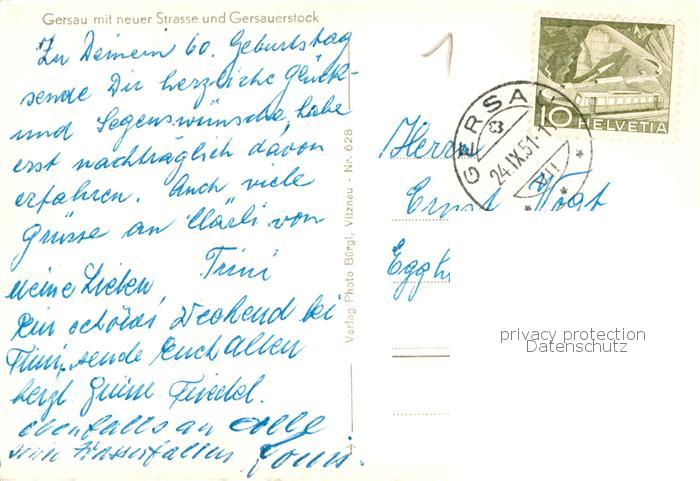 Gersau mit neuer Strasse und Gersauerstock
Zu Deinem 60. Geburtstag
sende Dir herzliche Glück-
und Segenswünsche, habe
erst nachträglich davon
erfahren. Auch viele
Grüsse an Klärli von
Trini
Meine Lieben,
Ein schönes Weekend bei
Trini, sende Euch allen
herzl. Grüsse Friedel.
ebenfalls an alle
Louis.
Verlag Photo Bürgi, Vitznau - Nr. 628
1
10 HELVETIA
GERSAU
24.IX.51-1
Herrn
Ernst Vogt
Eggh
privacy protection
Datenschutz